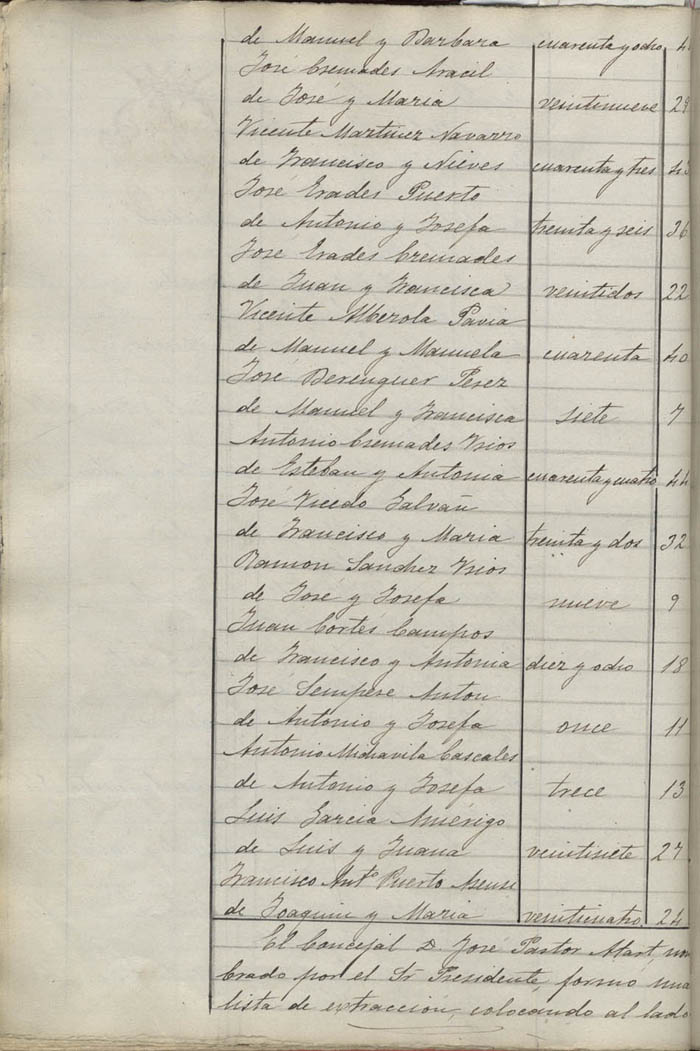 de Manuel y Barbara cuarenta y ocho 4
José Cremades Aracil
de José y Maria veintinueve 29
Vicente Martinez Navarro
de Francisco y Nieves cuarenta y tres 43
José Erades Puerto
de Antonio y Josefa treinta y seis 36
José Erades Cremades
de Juan y Francisca veintidos 22
Vicente Alberola Pavia
de Manuel y Manuela cuarenta 40
José Berenguer Perez
de Manuel y Francisca siete 7
Antonio Cremades Vrios
de Esteban y Antonia cuarenta y cuatro 44
José Vicedo Galvañ
de Francisco y Maria treinta y dos 32
Ramon Sanchez Vrios
de José y Josefa nueve 9
Juan Cortés Campos
de Francisco y Antonia diez y ocho 18
José Sempere Anton
de Antonio y Josefa once 11
Antonio Michavila Cascales
de Antonio y Josefa trece 13
Luis Garcia Amérigo
de Luis y Juana veintisiete 27
Francisco Antº Puerto Asensi
de Joaquin y Maria veinticuatro 24
El Concejal D. José Pastor Mart, nom
brado por el Sr Presidente, formó una
lista de extracción, colocando al lado